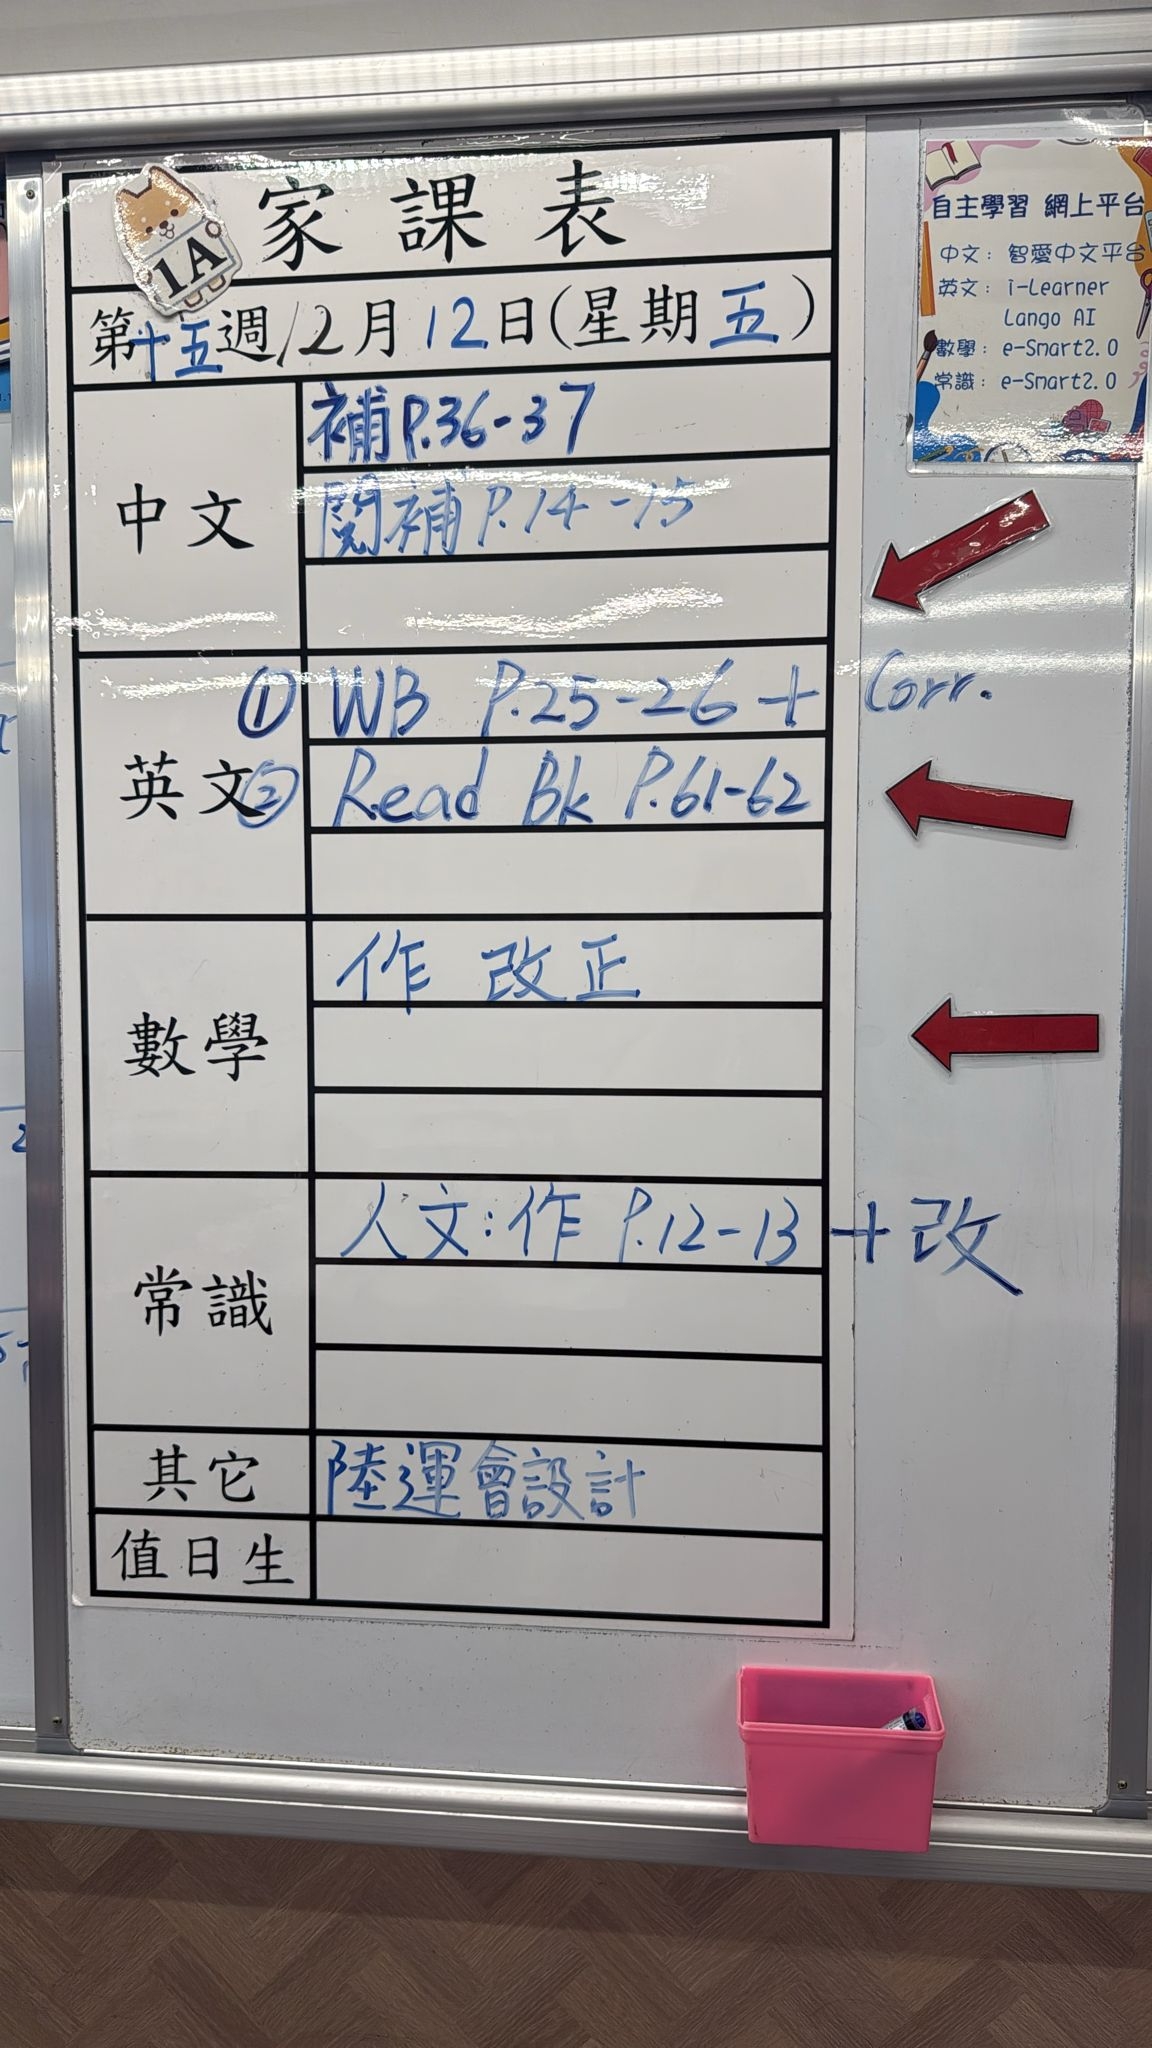 1A
家課表
第十五週 12月12日(星期五)
中文
補P.36-37
閱補P.14-15
英文
① WB P.25-26 + Corr.
② Read Bk P.61-62
數學
作 改正
常識
人文:作 P.12-13 +改
其它
陸運會設計
值日生
自主學習 網上平台
中文: 智愛中文平台
英文: i-Learner
Lango AI
數學: e-Smart2.0
常識: e-Smart2.0